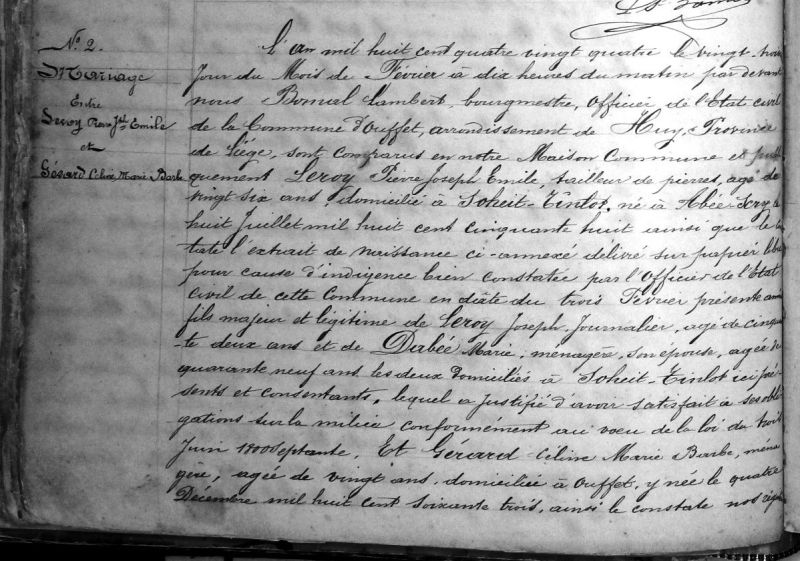 N° 2.
Mariage
Entre
Leroy Pierre Jph Emile
et
Gérard Céline Marie Barbe
L'an mil huit cent quatre vingt quatre le vingt trois
Jour du Mois de Février à dix heures du matin par devant
nous Bonual Lambert, bourgmestre, Officier de l'Etat civil
de la Commune d'Ouffet, arrondissement de Huy, Province
de Liège, sont comparus en notre Maison Commune et publi
quement Leroy Pierre Joseph Emile, tailleur de pierres, agé de
vingt six ans domicilié à Soheit-Tinlot, né à Abée-Scry le
huit Juillet mil huit cent cinquante huit ainsi que le cons
tate l'extrait de naissance ci-annexé délivré sur papier libre
pour cause d'indigence bien constatée par l'Officier de l'Etat
Civil de cette Commune en date du trois Février présente année
fils majeur et légitime de Leroy Joseph, Journalier, agé de cinquan
te deux ans et de Dabée Marie, ménagère, son épouse, agée de
quarante neuf ans les deux domiciliés à Soheit-Tinlot ici pré-
sents et consentants, lequel a justifié d'avoir satisfait à ses obli
gations sur la milice conformement au vœu de la loi du trois
Juin 1800 septante, Et Gérard Céline Marie Barbe, ména
gère, agée de vingt ans, domiciliée à Ouffet, y née le quatre
Décembre mil huit cent soixante trois, ainsi le constate nos régis